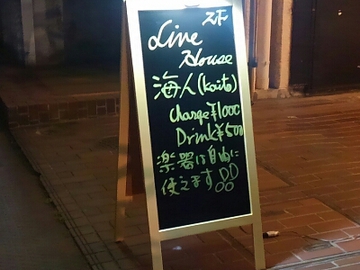 2F
Live
House
海人(kaito)
charge¥1000
Drink¥500
楽器は自由に
使えます